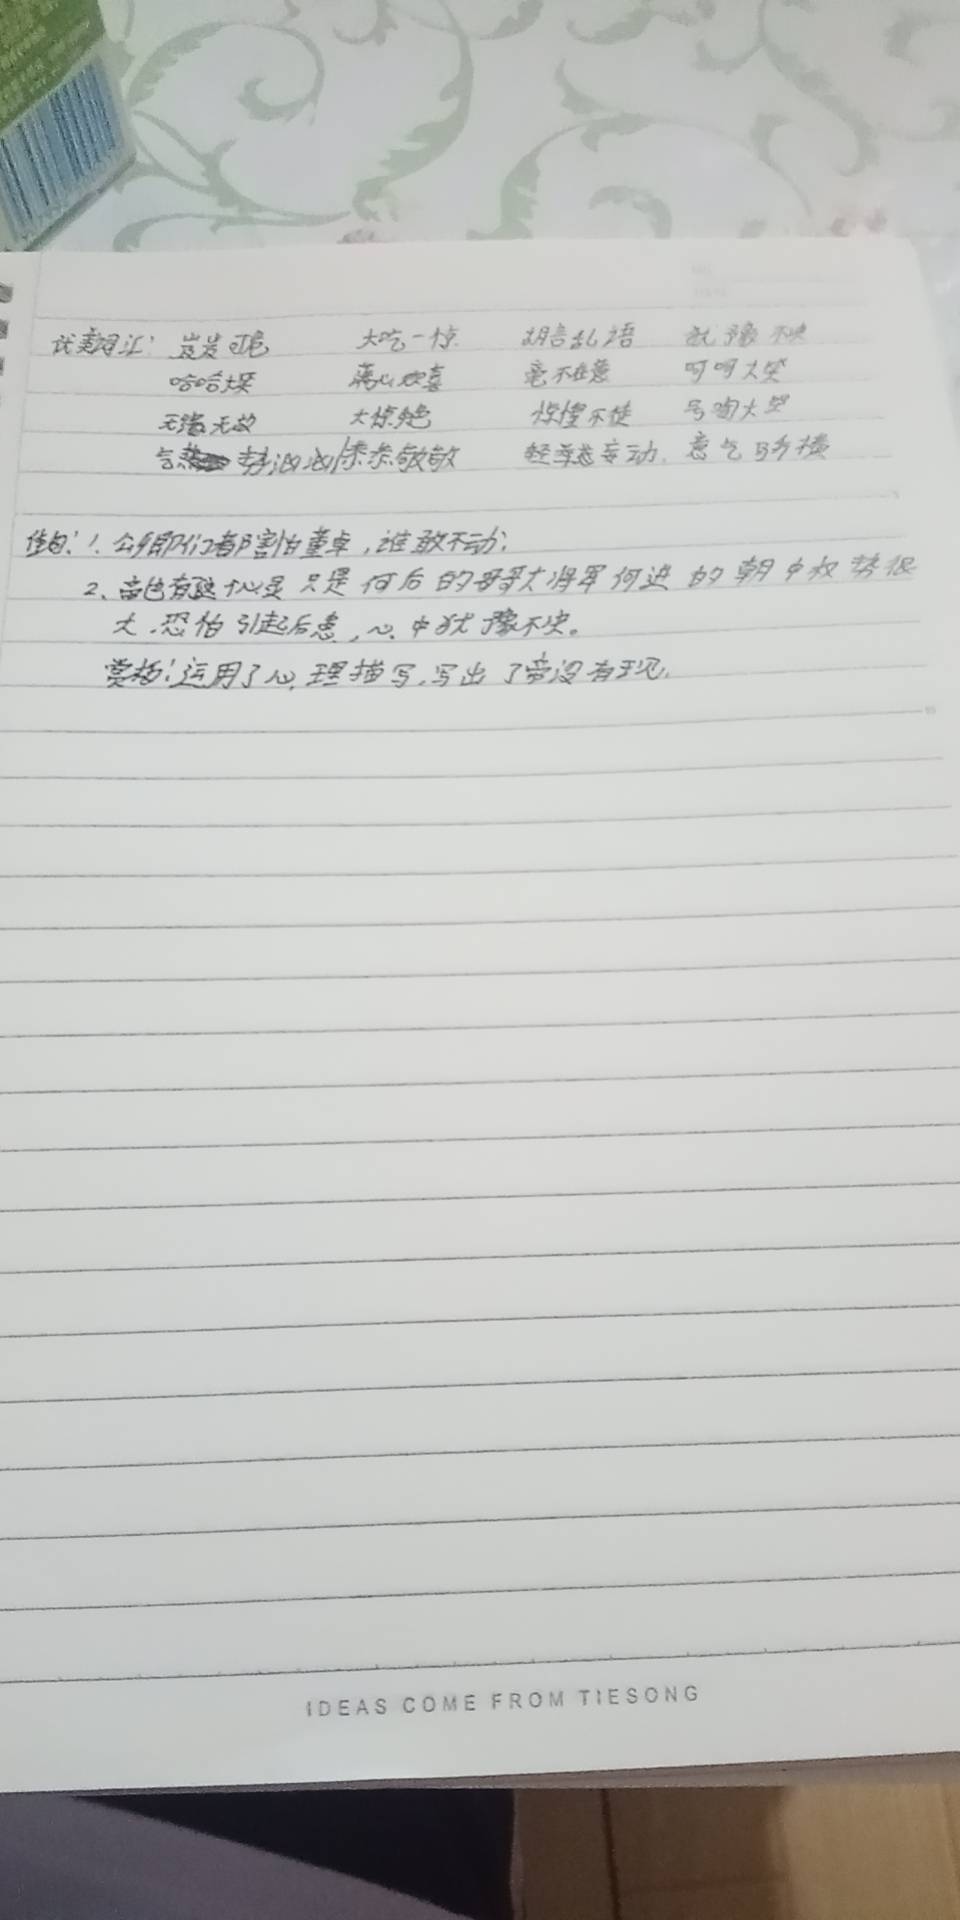 优美词汇: 岌岌可危 大吃一惊 胡言乱语 犹豫不决
哈哈大笑 满心欢喜 毫不在意 呵呵大笑
无缘无故 大惊失色 惊惶不 号啕大哭
气势汹汹 恭恭敬敬 轻举妄动 意气骄横
佳句: 1. 公卿们都害怕董卓,谁敢不动;
2、帝也有这个心思 只是何后的哥哥大将军何进的朝中权势很
大,恐怕引起后患,心中犹豫不决。
赏析: 运用了心理描写,写出了帝没有主见.
IDEAS COME FROM TIESONG